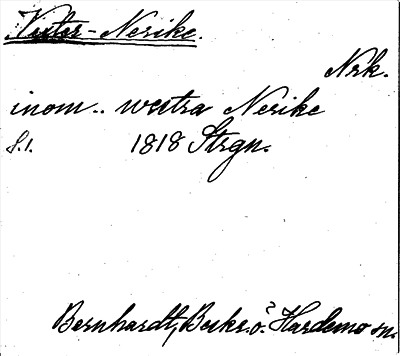 Vester-Nerike.
Nrk.
inom .. westra Nerike
s.1. 1818 Strgn.
Bernhardt, Beskr. ö. Hardemo sn.